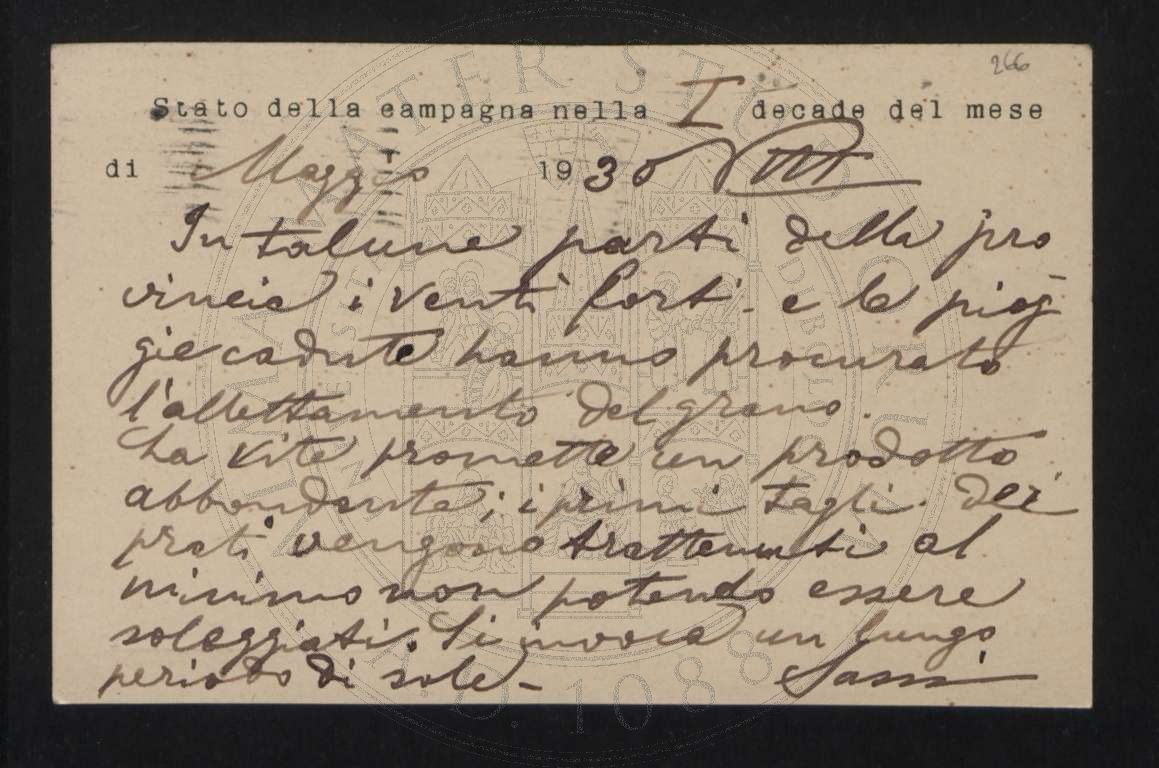 266
Stato della campagna nella I decade del mese
di Maggio 1930 VIII
In talune parti della pro
vincia i venti forti e le piog
gie cadute hanno procurato
l'allettamento del grano.
La vite promette un prodotto
abbondante; i primi tagli dei
prati vengono trattenuti al
minimo non potendo essere
soleggiati. Si invoca un lungo
periodo di sole -
Sassi
ALMA MATER STUDIORUM
A.D. 1088